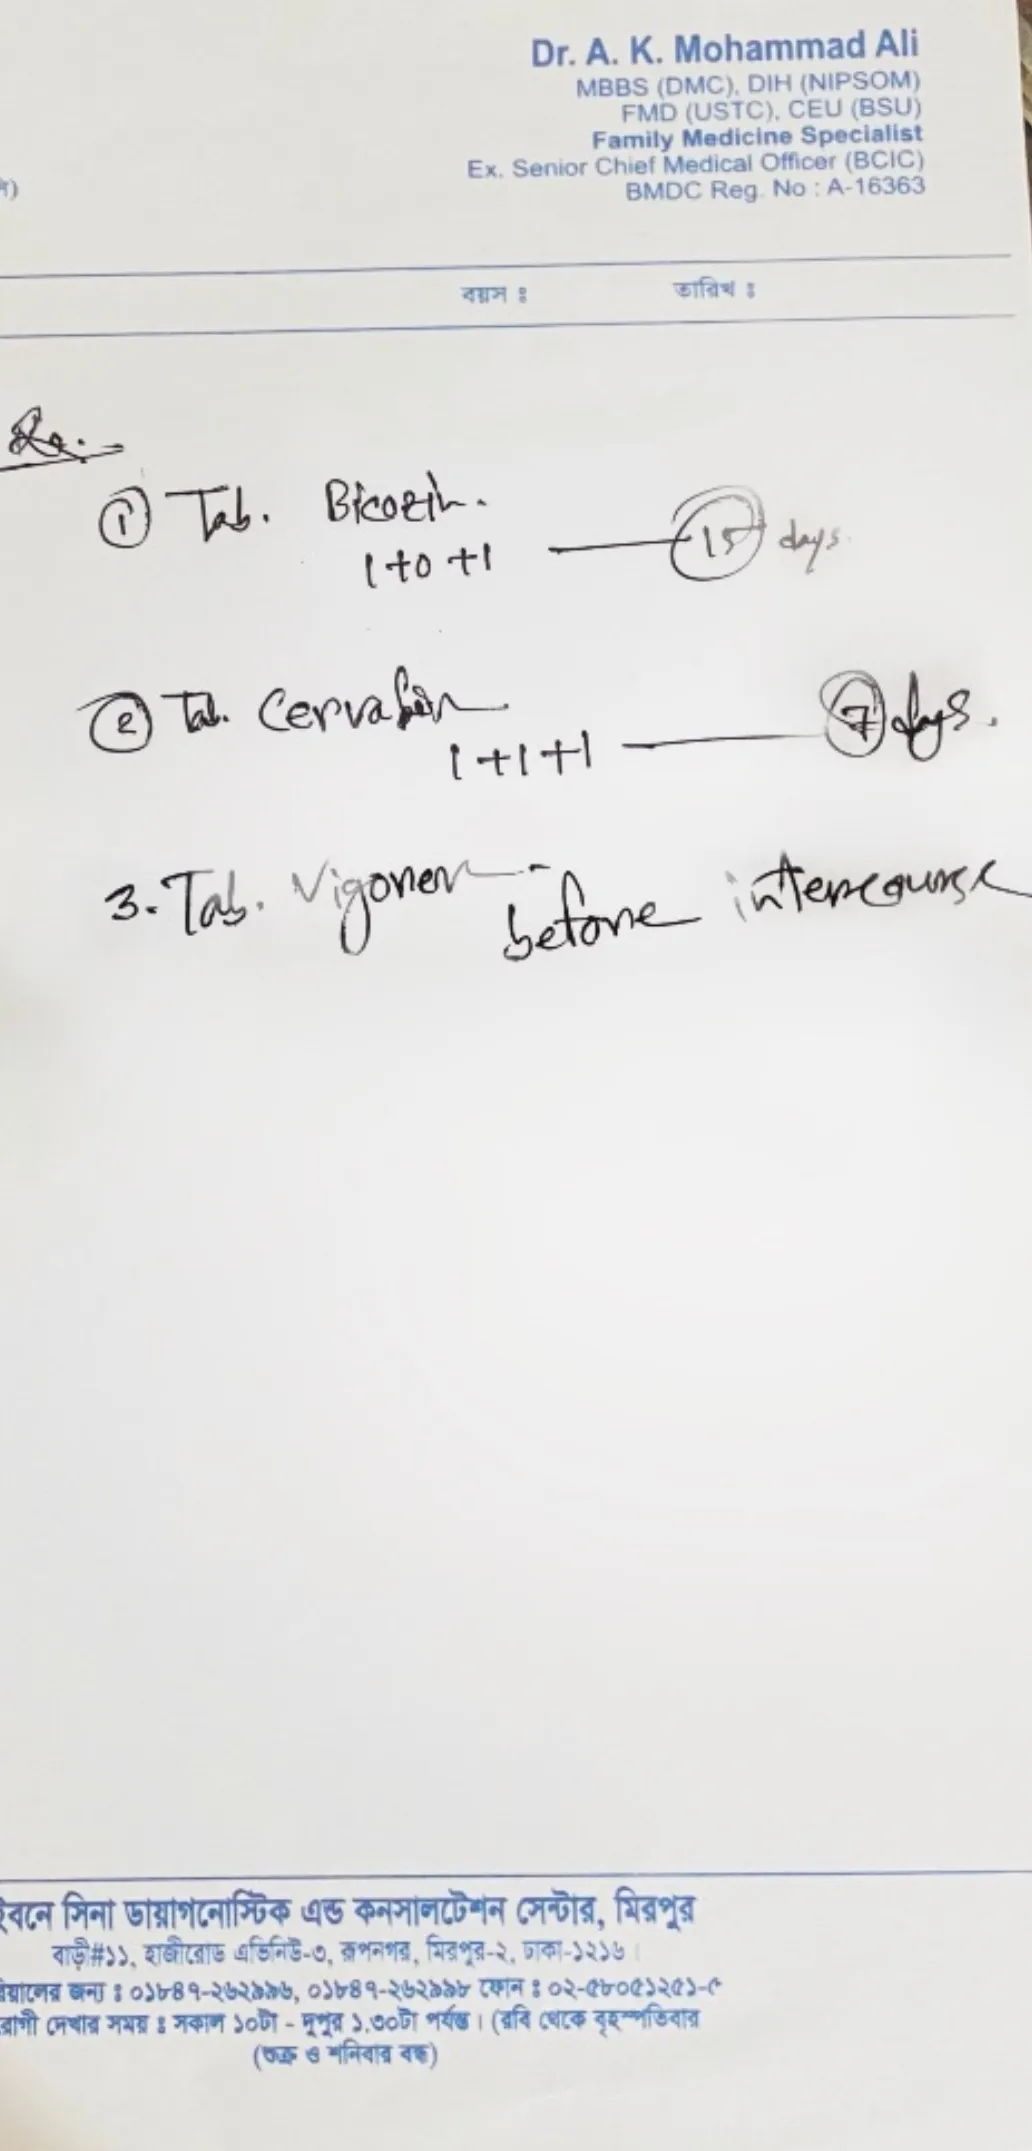 Dr. A. K. Mohammad Ali
MBBS (DMC), DIH (NIPSOM)
FMD (USTC), CEU (BSU)
Family Medicine Specialist
Ex. Senior Chief Medical Officer (BCIC)
BMDC Reg. No : A-16363
বয়স ঃ তারিখ ঃ
Rx.
① Tab. Bicozin.
1+0+1 — 15 days.
② Tab.
1+1+1 — 7 days.
3. Tab. Vigorex -
before intercourse
ইবনে সিনা ডায়াগনোস্টিক এন্ড কনসালটেশন সেন্টার, মিরপুর
বাড়ী#১১, হাজীরোড এভিনিউ-৩, রূপনগর, মিরপুর-২, ঢাকা-১২১৬।
জন্য ঃ ০১৮৪৭-২৬২৯৯৬, ০১৮৪৭-২৬২৯৯৮ ফোন ঃ ০২-৫৮০৫১২৫১-৫
রোগী দেখার সময় ঃ সকাল ১০টা - দুপুর ১.৩০টা পর্যন্ত। (রবি থেকে বৃহস্পতিবার
(শুক্র ও শনিবার বন্ধ)